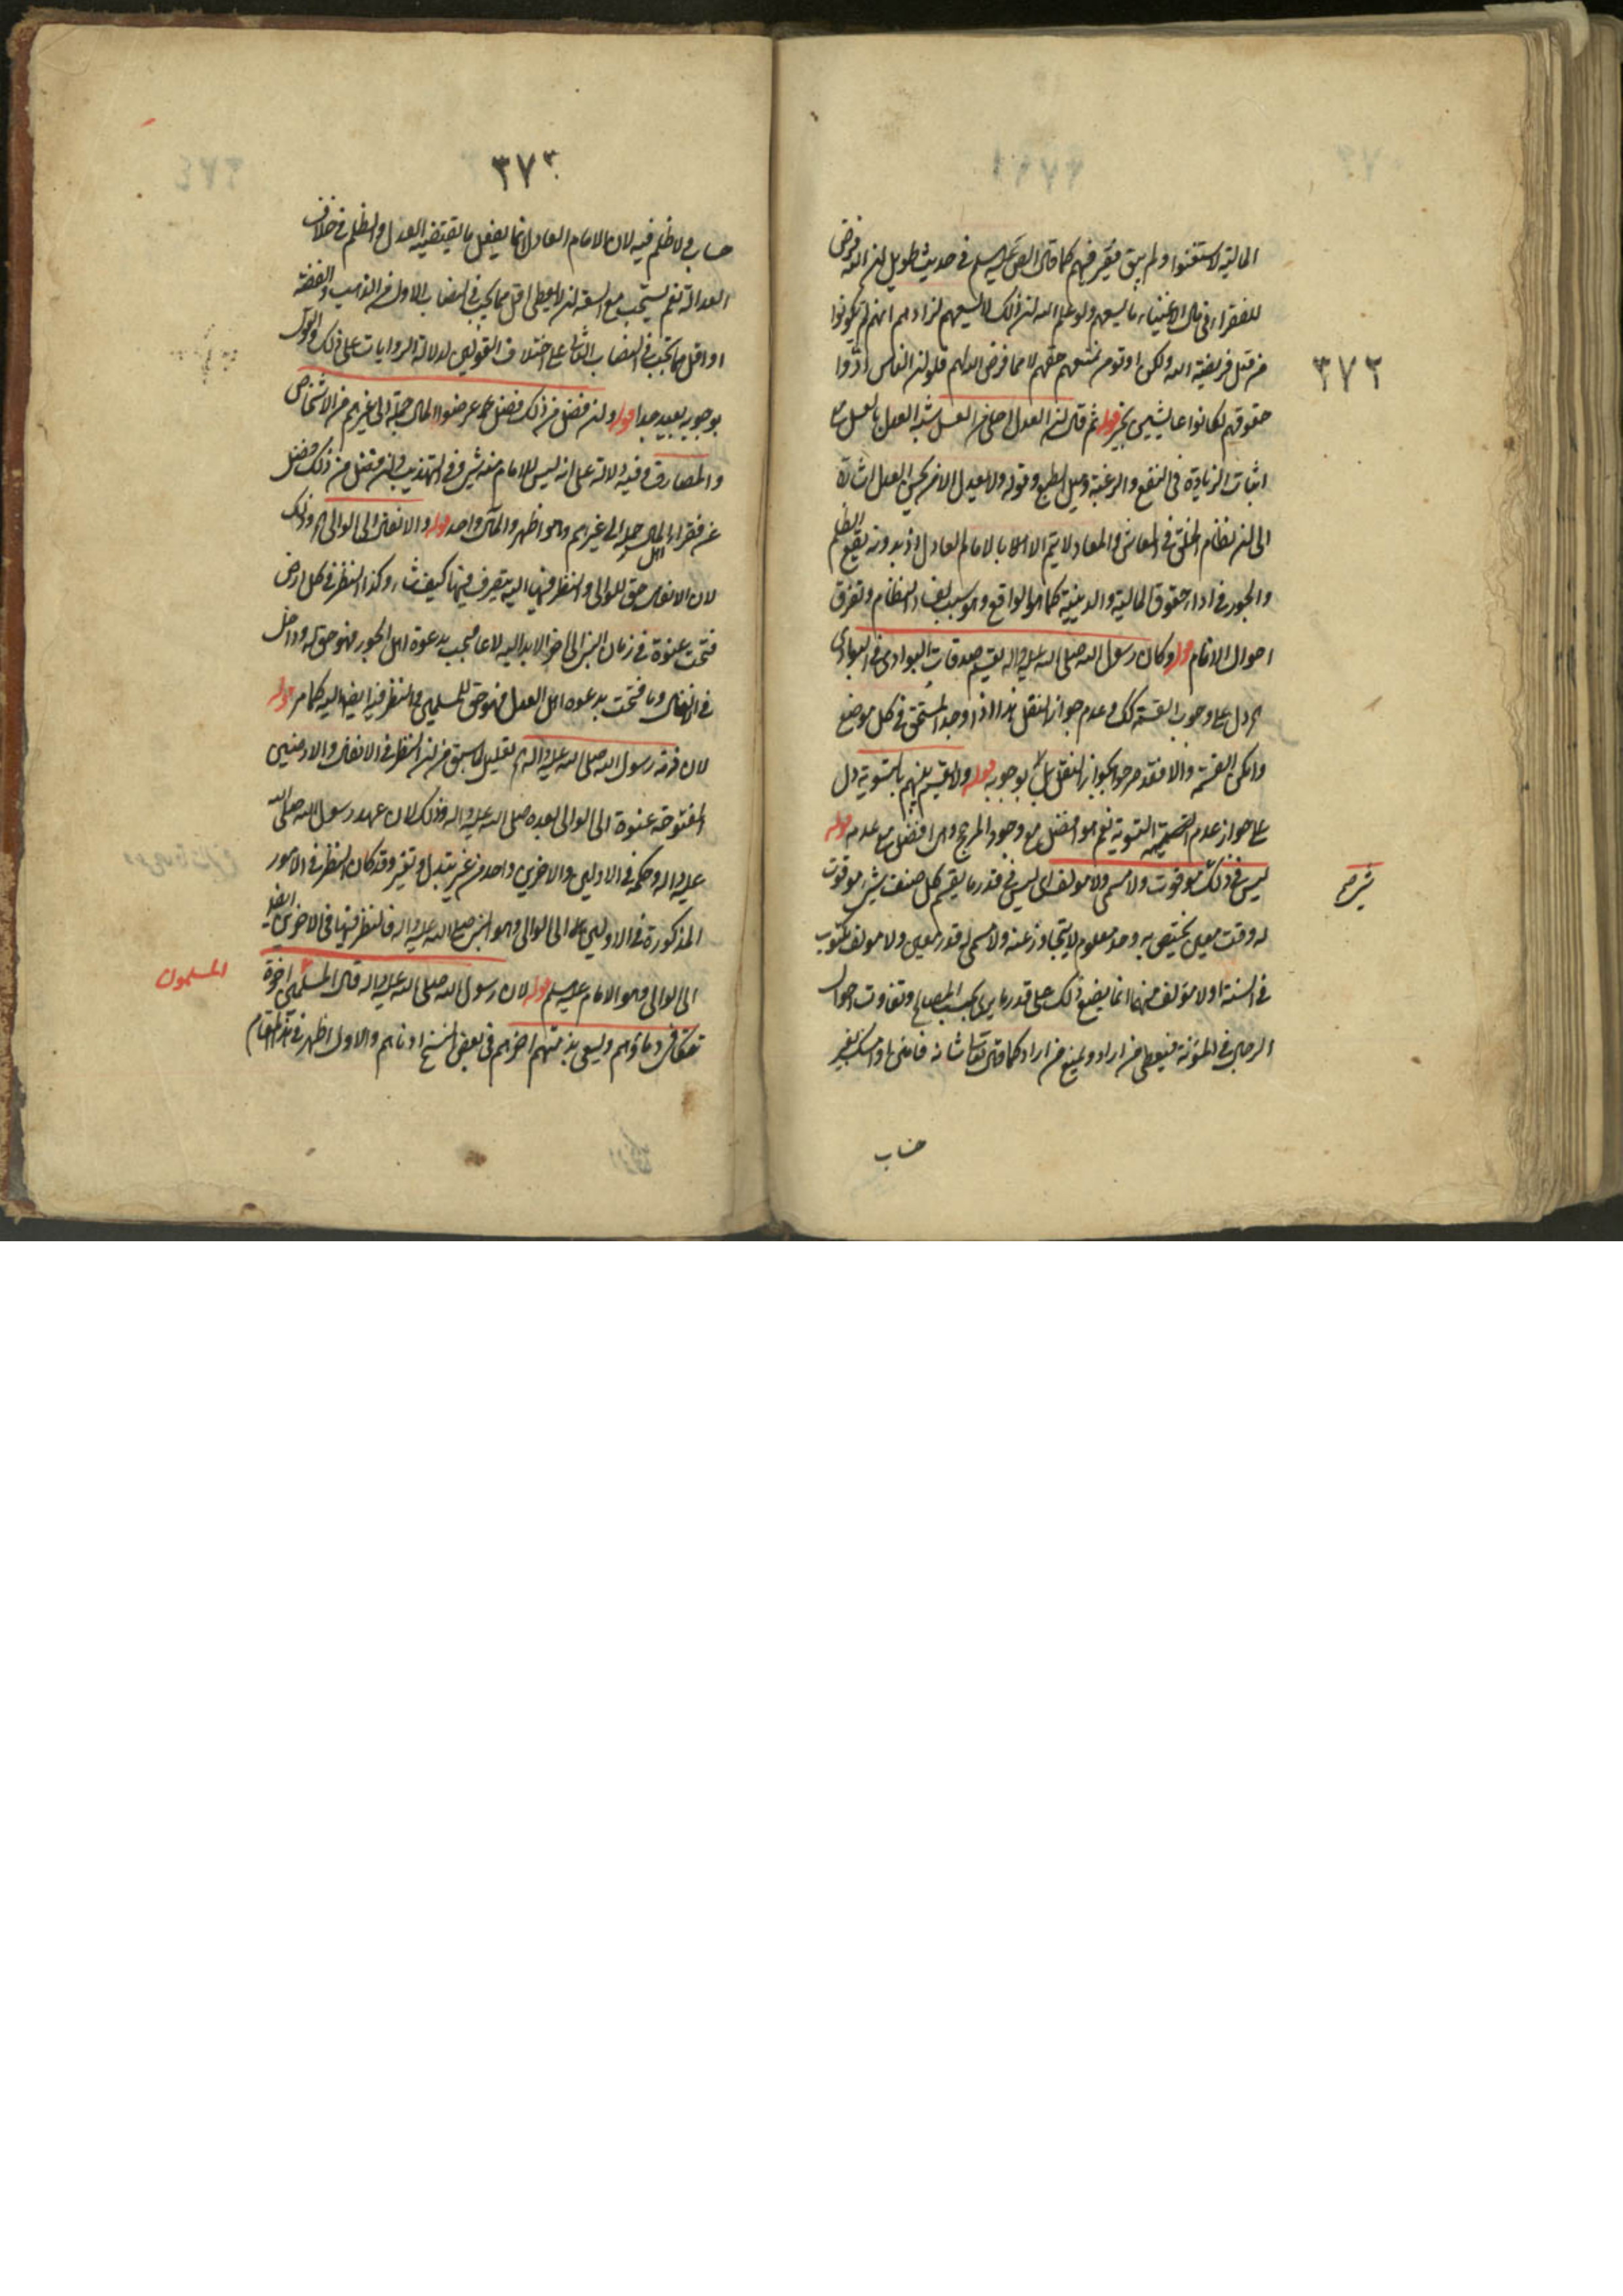 ٣٧٢
المالية لاستغنوا ولم يبق فقير فيهم كما قال الصادق عليه السلم في حديث طويل ان الله فرض
للفقراء في مال الاغنياء ما يسعهم ولو علم الله ان ذلك لا يسعهم لزادهم انهم لم يؤتوا
من قبل فريضة الله ولكن اوتوا من منع من منعهم حقهم لا مما فرض الله لهم فلو ان الناس ادّوا
حقوقهم لكانوا عايشين بخير قوله ثم قال ان العدل احلى من العسل شبه العدل بالعسل مع
اثبات الزيادة في النفع والرغبة وميل الطبع وقوله ولا يعدل الا من يحسن العدل اشارة
الى ان نظام الخلق في المعاش والمعاد لا يتم الا بالامام العادل اذ بدونه يقع الظلم
والجور في اداء حقوق المالية والدينية كما هو الواقع وهو سبب لفساد النظام وتفرق
احوال الانام قوله وكان رسول الله صلى الله عليه واله يقسم صدقات البوادي في البوادي
اه دل على وجوب القسمة كك وعدم جواز النقل هذا اذا وجد المستحق في كل موضع
وامكن القسمة والا فقد صرحوا بجواز النقل بل بوجوبه قوله ولا يقسم بينهم بالسوية دل
على جواز عدم التسوية نعم هو افضل مع وجود المرجح وهي افضل مع عدمه قوله
ليس في ذلك شيء موقوت ولا مسمى ولا مؤلف اي ليس في قدر ما يقسم كل صنف شيء موقوت
له وقت معين يختص به وحد معلوم لا يتجاوز عنه ولا مسمى له قدر معين ولا مؤلف مكتوب
في السنة اولا مؤلف منهما انما يضع ذلك على قدر ما يرى بحسب المصالح وتفاوت احوال
الرجال في المؤنة فيعطى من اراد ويمنع من اراد كما قال تعالى شانه فامنن او امسك بغير
حساب
٣٧٣
حساب ولا ظلم فيه لان الامام العادل انما يفعل ما يقتضيه العدل والظلم في خلاف
العدالة نعم يستحب مع السعة ان لا يعطى اقل مما يجب في النصاب الاول من الذهب والفضة
او اقل مما تجب في النصاب الثاني على اختلاف القولين لدلالة الروايات على ذلك والقول
بوجوبه بعيد جدا قوله وان فضل من ذلك فضل عرضوا المال جملة الى غيرهم من الاشخاص
والمصارف وفيه دلالة على انه ليس للامام منه شيء وفي التهذيب وان فضل من ذلك فضل
عن فقراء اهل المال حمله الى غيرهم وهو اظهر والمآل واحد قوله والانفال الى الوالي اه وذلك
لان الانفال حق للوالي والنظر فيها اليه يتصرف فيها كيف شاء وكذا النظر في كل ارض
فتحت عنوة في زمان النبي الى اخر الابد اليه لا ما فتحت بدعوة اهل الجور فهو حق له وداخل
في الانفال وما فتحت بدعوة اهل العدل فهو حق للمسلمين والنظر فيه ايضا اليه كما مر قوله
لان ذمة رسول الله صلى الله عليه واله اه تعليل لما سبق من ان النظر في الانفال والارضين
المفتوحة عنوة الى الوالي بعده صلى الله عليه واله وذلك لان عهد رسول الله صلى الله
عليه واله وحكمه في الاولين والاخرين واحد من غير تبدل وتغير وقد كان النظر في الامور
المذكورة في الاولين الى الوالي وهو النبي صلى الله عليه واله فالنظر فيها في الاخرين ايضا
الى الوالي وهو الامام عليه السلم قوله لان رسول الله صلى الله عليه واله قال المسلمين اخوة
المسلمون
تتكافى دماؤهم ويسعى بذمتهم اخرهم في بعض النسخ ادناهم والاول اظهر في هذا المقام